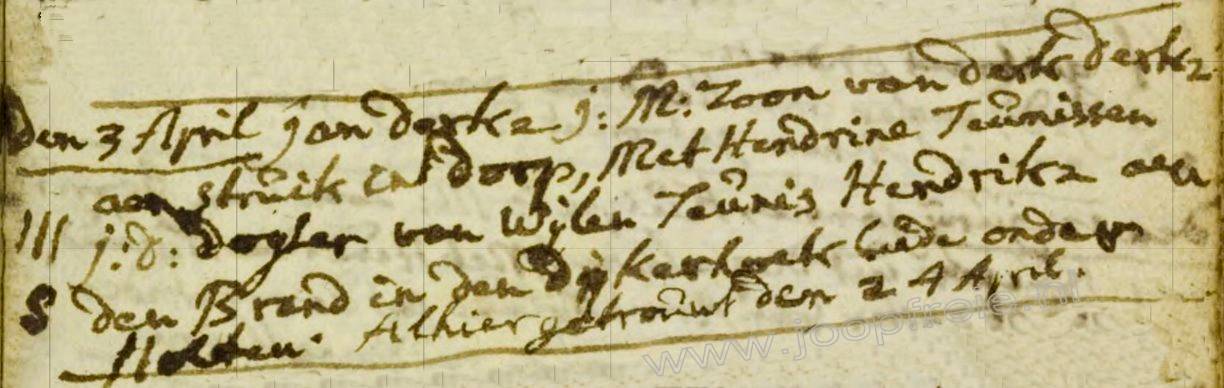 den 3 April jan derkz j: M: Zoon van derk derkz
aen struik in dorp, Met Hendrine Teunissen
III j: d: dogter van Wijlen Teunis Hendrikz aen
8 den Brand in den Dijkerhoek beide onder
Holten. Alhier getrouwt den 24 April.
www.joopfreie.nl